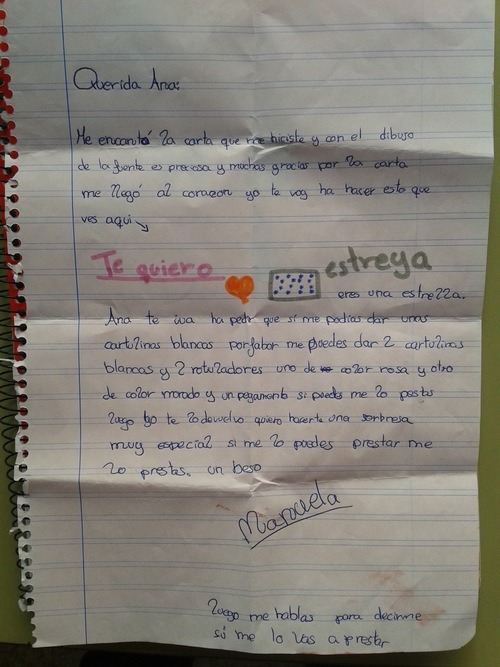 Querida Ana:
Me encantó la carta que me hiciste y con el dibuso
de la fuente es preciosa y muchas gracias por la carta
me llegó al corazon yo te voy ha hacer esto que
ves aqui
Te quiero estreya
eres una estrella.
Ana te iva ha pedir que si me podias dar unas
cartulinas blancas porfabor me puedes dar 2 cartulinas
blancas y 2 rotuladores uno de color rosa y otro
de color morado y un pegamento si puedes me lo prestas
luego yo te lo devuelvo quiero hacerte una sorbresa
muy especial si me lo puedes prestar me
lo prestas. un beso
Manuela
luego me hablas para decirme
si me lo vas a prestar